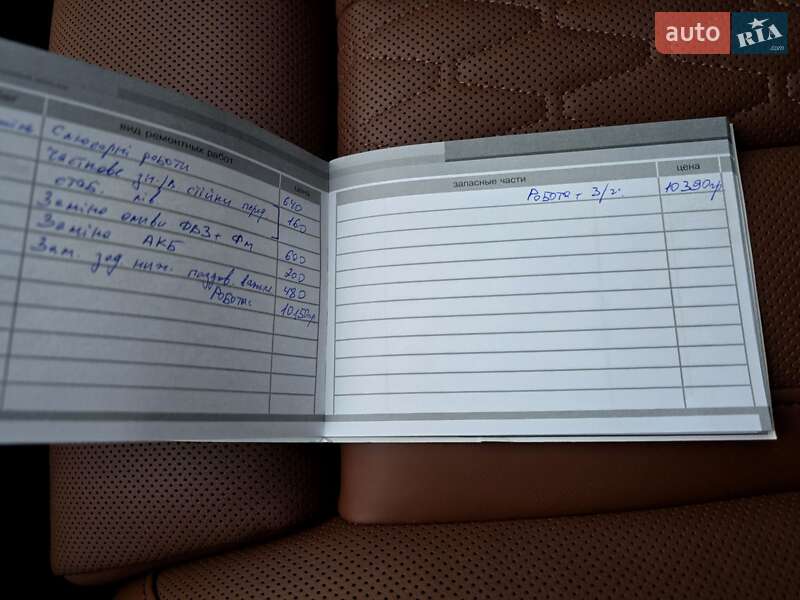 auto RIA .com
вид ремонтных работ
цена
Слюсарні роботи
Часткове зн/п стійки перед 640
стаб. лів 160
Заміна оливи ФВЗ + Фм 600
Заміна АКБ 200
Зам. зад ниж. поздов. 480
Робота:
запасные части
цена
Робота + З/ч. 10390гр